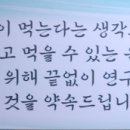 이 먹는다는 생각
고 먹을 수 있는
위해 끝없이 연구
것을 약속드립니